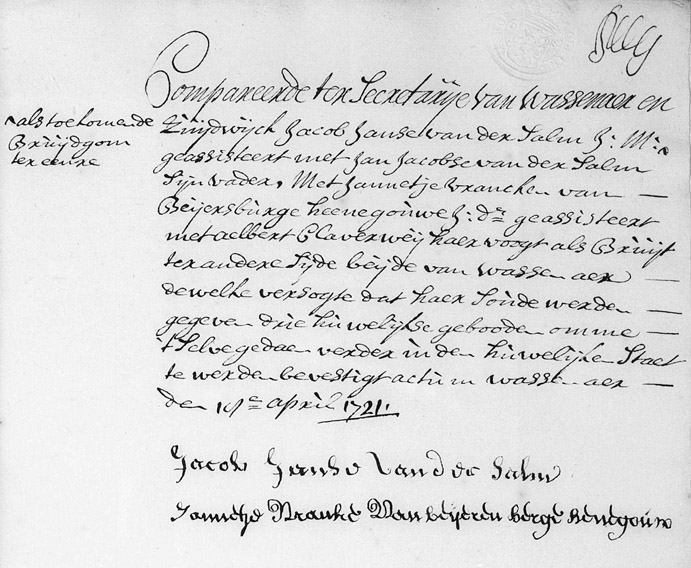 Compareerde ter Secretarije van Wassenaer en
^als toekomende
Bruijdgom
ter eenre
Zuijdwijck Jacob Janse van der Salm J: M: ^
geassisteert met Jan Jacobse van der Salm
Sijn vader, Met Jannetje vrancken van —
Beijersburge heenegouwe J: dr geassisteert
met aelbert Claverweij haer voogt als Bruijt
ter andere Sijde beijde van wassenaer —
dewelke versogte dat haer Soude werden —
gegeven drie huwelijkse gebooden omme —
t Selve gedaen verder in den huwelijken Staet
te werden bevestigt actum wassenaer —
den april 1721.
Jacob Janse Van der Salm
Jannetje Vranke Van beyeren berge henegouw